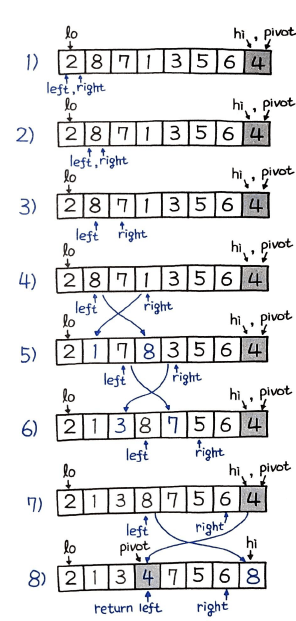 lo hi , pivot
1) 2 8 7 1 3 5 6 4
left , right
lo hi , pivot
2) 2 8 7 1 3 5 6 4
left , right
lo hi , pivot
3) 2 8 7 1 3 5 6 4
left right
lo hi , pivot
4) 2 8 7 1 3 5 6 4
left right
5) 2 1 7 8 3 5 6 4
left right
lo hi , pivot
6) 2 1 3 8 7 5 6 4
left right
lo hi , pivot
7) 2 1 3 8 7 5 6 4
left right
lo pivot hi
8) 2 1 3 4 7 5 6 8
return left right